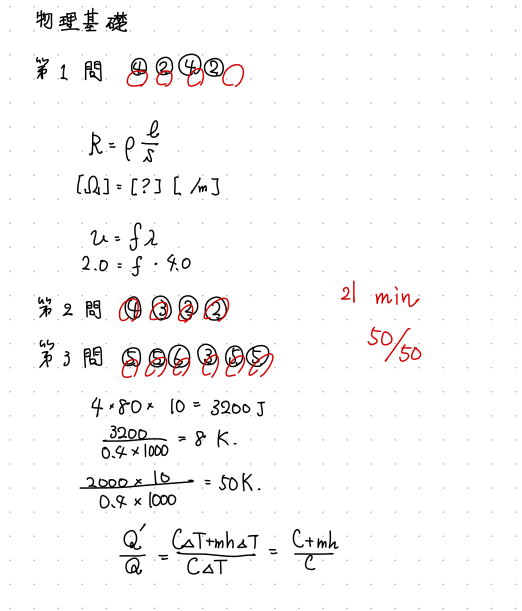 物理基礎
第1問 ④②④②
R = ρ l/s
[Ω] = [?] [ /m]
v = fλ
2.0 = f · 4.0
第2問 ④③②②
21 min
50/50
第3問 ⑤⑤⑥③⑤⑤
4 × 80 × 10 = 3200 J
3200/0.4 × 1000 = 8 K.
2000 × 10/0.4 × 1000 = 50K.
Q'/Q = C△T+mh△T/C△T = C+mh/C